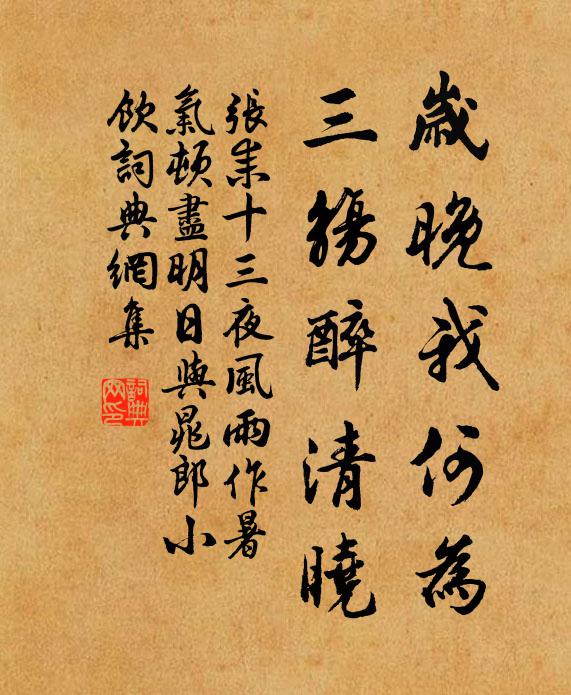 歲晚我何為
三觴醉清曉
張耒十三夜風雨作暑
氣頓盡明日與晁郎小
飲詞典網集
詞典網印